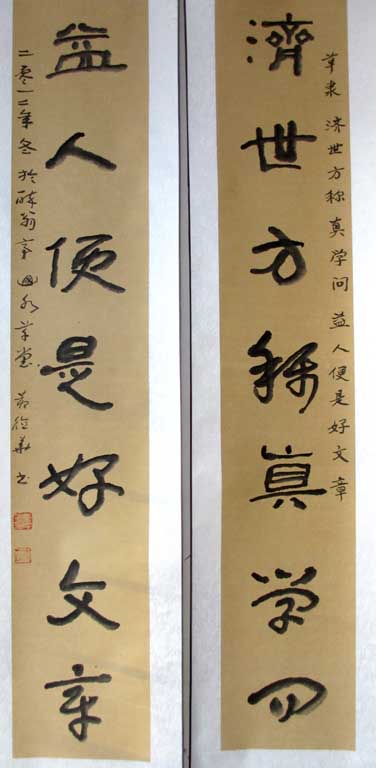 草隶 济世方称真学问 益人便是好文章
濟世方称真学问
益人便是好文章
二零一二年冬於醉翁亭 草堂 书